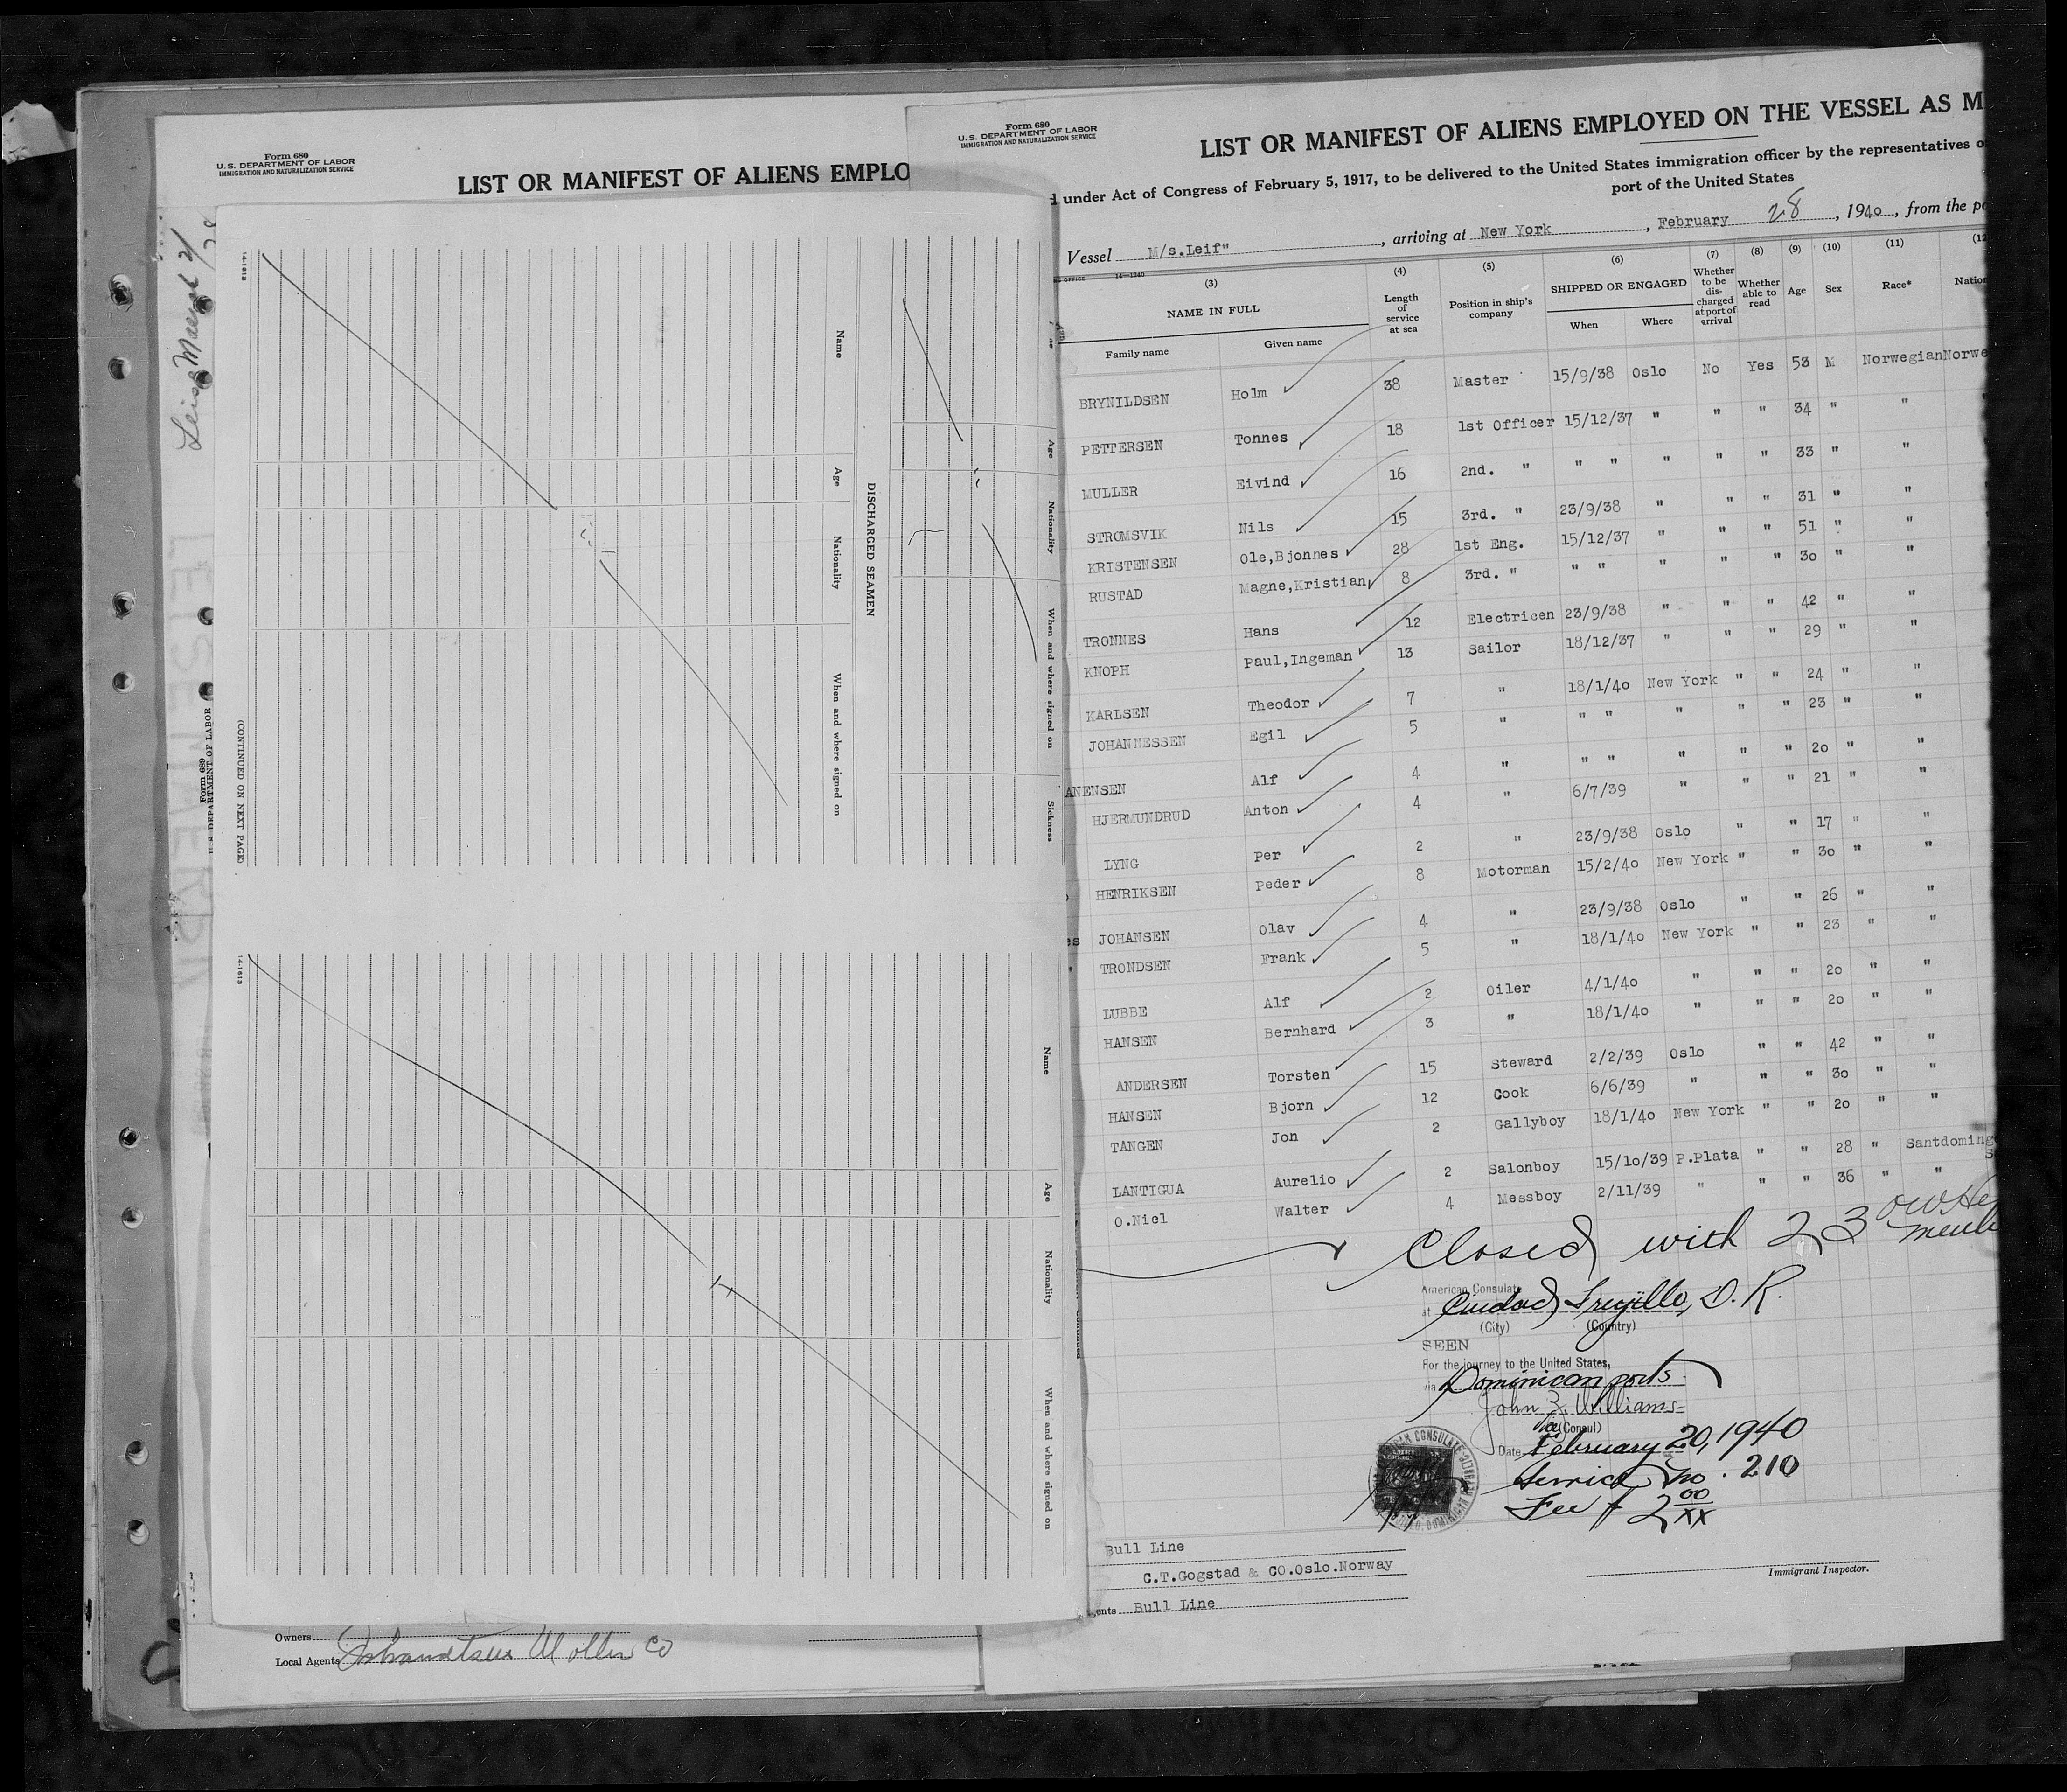 Form 680
U. S. DEPARTMENT OF LABOR
IMMIGRATION AND NATURALIZATION SERVICE
LIST OR MANIFEST OF ALIENS EMPLO
14-1613
Name
Age
Nationality
When and where signed on
DISCHARGED SEAMEN
Age
Nationality
When and where signed on
Sickness
Form 689
U. S. DEPARTMENT OF LABOR
(CONTINUED ON NEXT PAGE)
14-1613
Name
Age
Nationality
When and where signed on
Owners
Local Agents
Form 680
U. S. DEPARTMENT OF LABOR
IMMIGRATION AND NATURALIZATION SERVICE
LIST OR MANIFEST OF ALIENS EMPLOYED ON THE VESSEL AS M
d under Act of Congress of February 5, 1917, to be delivered to the United States immigration officer by the representatives o
port of the United States
Vessel M/s.Leif" , arriving at New York , February 28 , 1940 , from the po
(3) (4) (5) (6) (7) (8) (9) (10) (11) (12
NAME IN FULL
Family name Given name
Length of service at sea
Position in ship's company
SHIPPED OR ENGAGED
When Where
Whether to be discharged at port of arrival
Whether able to read
Age
Sex
Race*
Nation
BRYNILDSEN Holm 38 Master 15/9/38 Oslo No Yes 53 M Norwegian Norwe
PETTERSEN Tonnes 18 1st Officer 15/12/37 " " " 34 " "
MULLER Eivind 16 2nd. " " " " " " 33 " "
STROMSVIK Nils 15 3rd. " 23/9/38 " " " 31 " "
KRISTENSEN Ole,Bjonnes 28 1st Eng. 15/12/37 " " " 51 " "
RUSTAD Magne,Kristian 8 3rd. " " " " " " 30 " "
TRONNES Hans 12 Electricen 23/9/38 " " " 42 " "
KNOPH Paul,Ingeman 13 Sailor 18/12/37 " " " 29 " "
KARLSEN Theodor 7 " 18/1/40 New York " " 24 " "
JOHANNESSEN Egil 5 " " " " " " 23 " "
ANENSEN Alf 4 " " " " " " 20 " "
HJERMUNDRUD Anton 4 " 6/7/39 " " " 21 " "
LYNG Per 2 " 23/9/38 Oslo " " 17 " "
HENRIKSEN Peder 8 Motorman 15/2/40 New York " " 30 " "
JOHANSEN Olav 4 " 23/9/38 Oslo " " 26 " "
TRONDSEN Frank 5 " 18/1/40 New York " " 23 " "
LUBBE Alf 2 Oiler 4/1/40 " " " 20 " "
HANSEN Bernhard 3 " 18/1/40 " " " 20 " "
ANDERSEN Torsten 15 Steward 2/2/39 Oslo " " 42 " "
HANSEN Bjorn 12 Cook 6/6/39 " " " 30 " "
TANGEN Jon 2 Gallyboy 18/1/40 New York " " 20 " "
LANTIGUA Aurelio 2 Salonboy 15/10/39 P.Plata " " 28 " Santdoming
O.Nicl Walter 4 Messboy 2/11/39 " " " 36 " "
Closed with 23
American Consulate
at Ciudad Trujillo, D. R.
(City) (Country)
SEEN
For the journey to the United States,
via Dominican ports
John Z. Williams
Vice (Consul)
Date February 20, 1940
Service No. 210
Fee $ 2 00/xx
Bull Line
C.T.Gogstad & CO.Oslo.Norway
ents Bull Line
Immigrant Inspector.